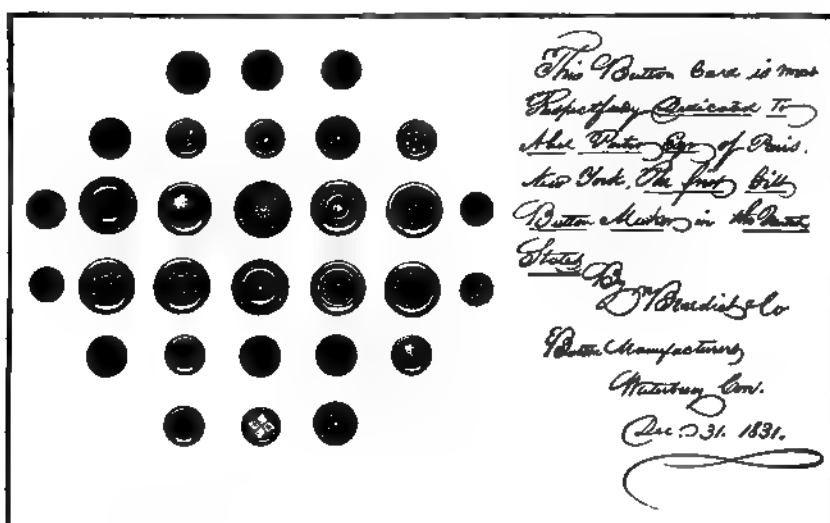 This Button Card is most
Respectfully Dedicated To
Abel Porter Esqr of Paris.
New York, The first Gilt
Button Maker in the United
States
By Benedict & Co
Button Manufacturers
Waterbury Con.
Dec. 31. 1831.